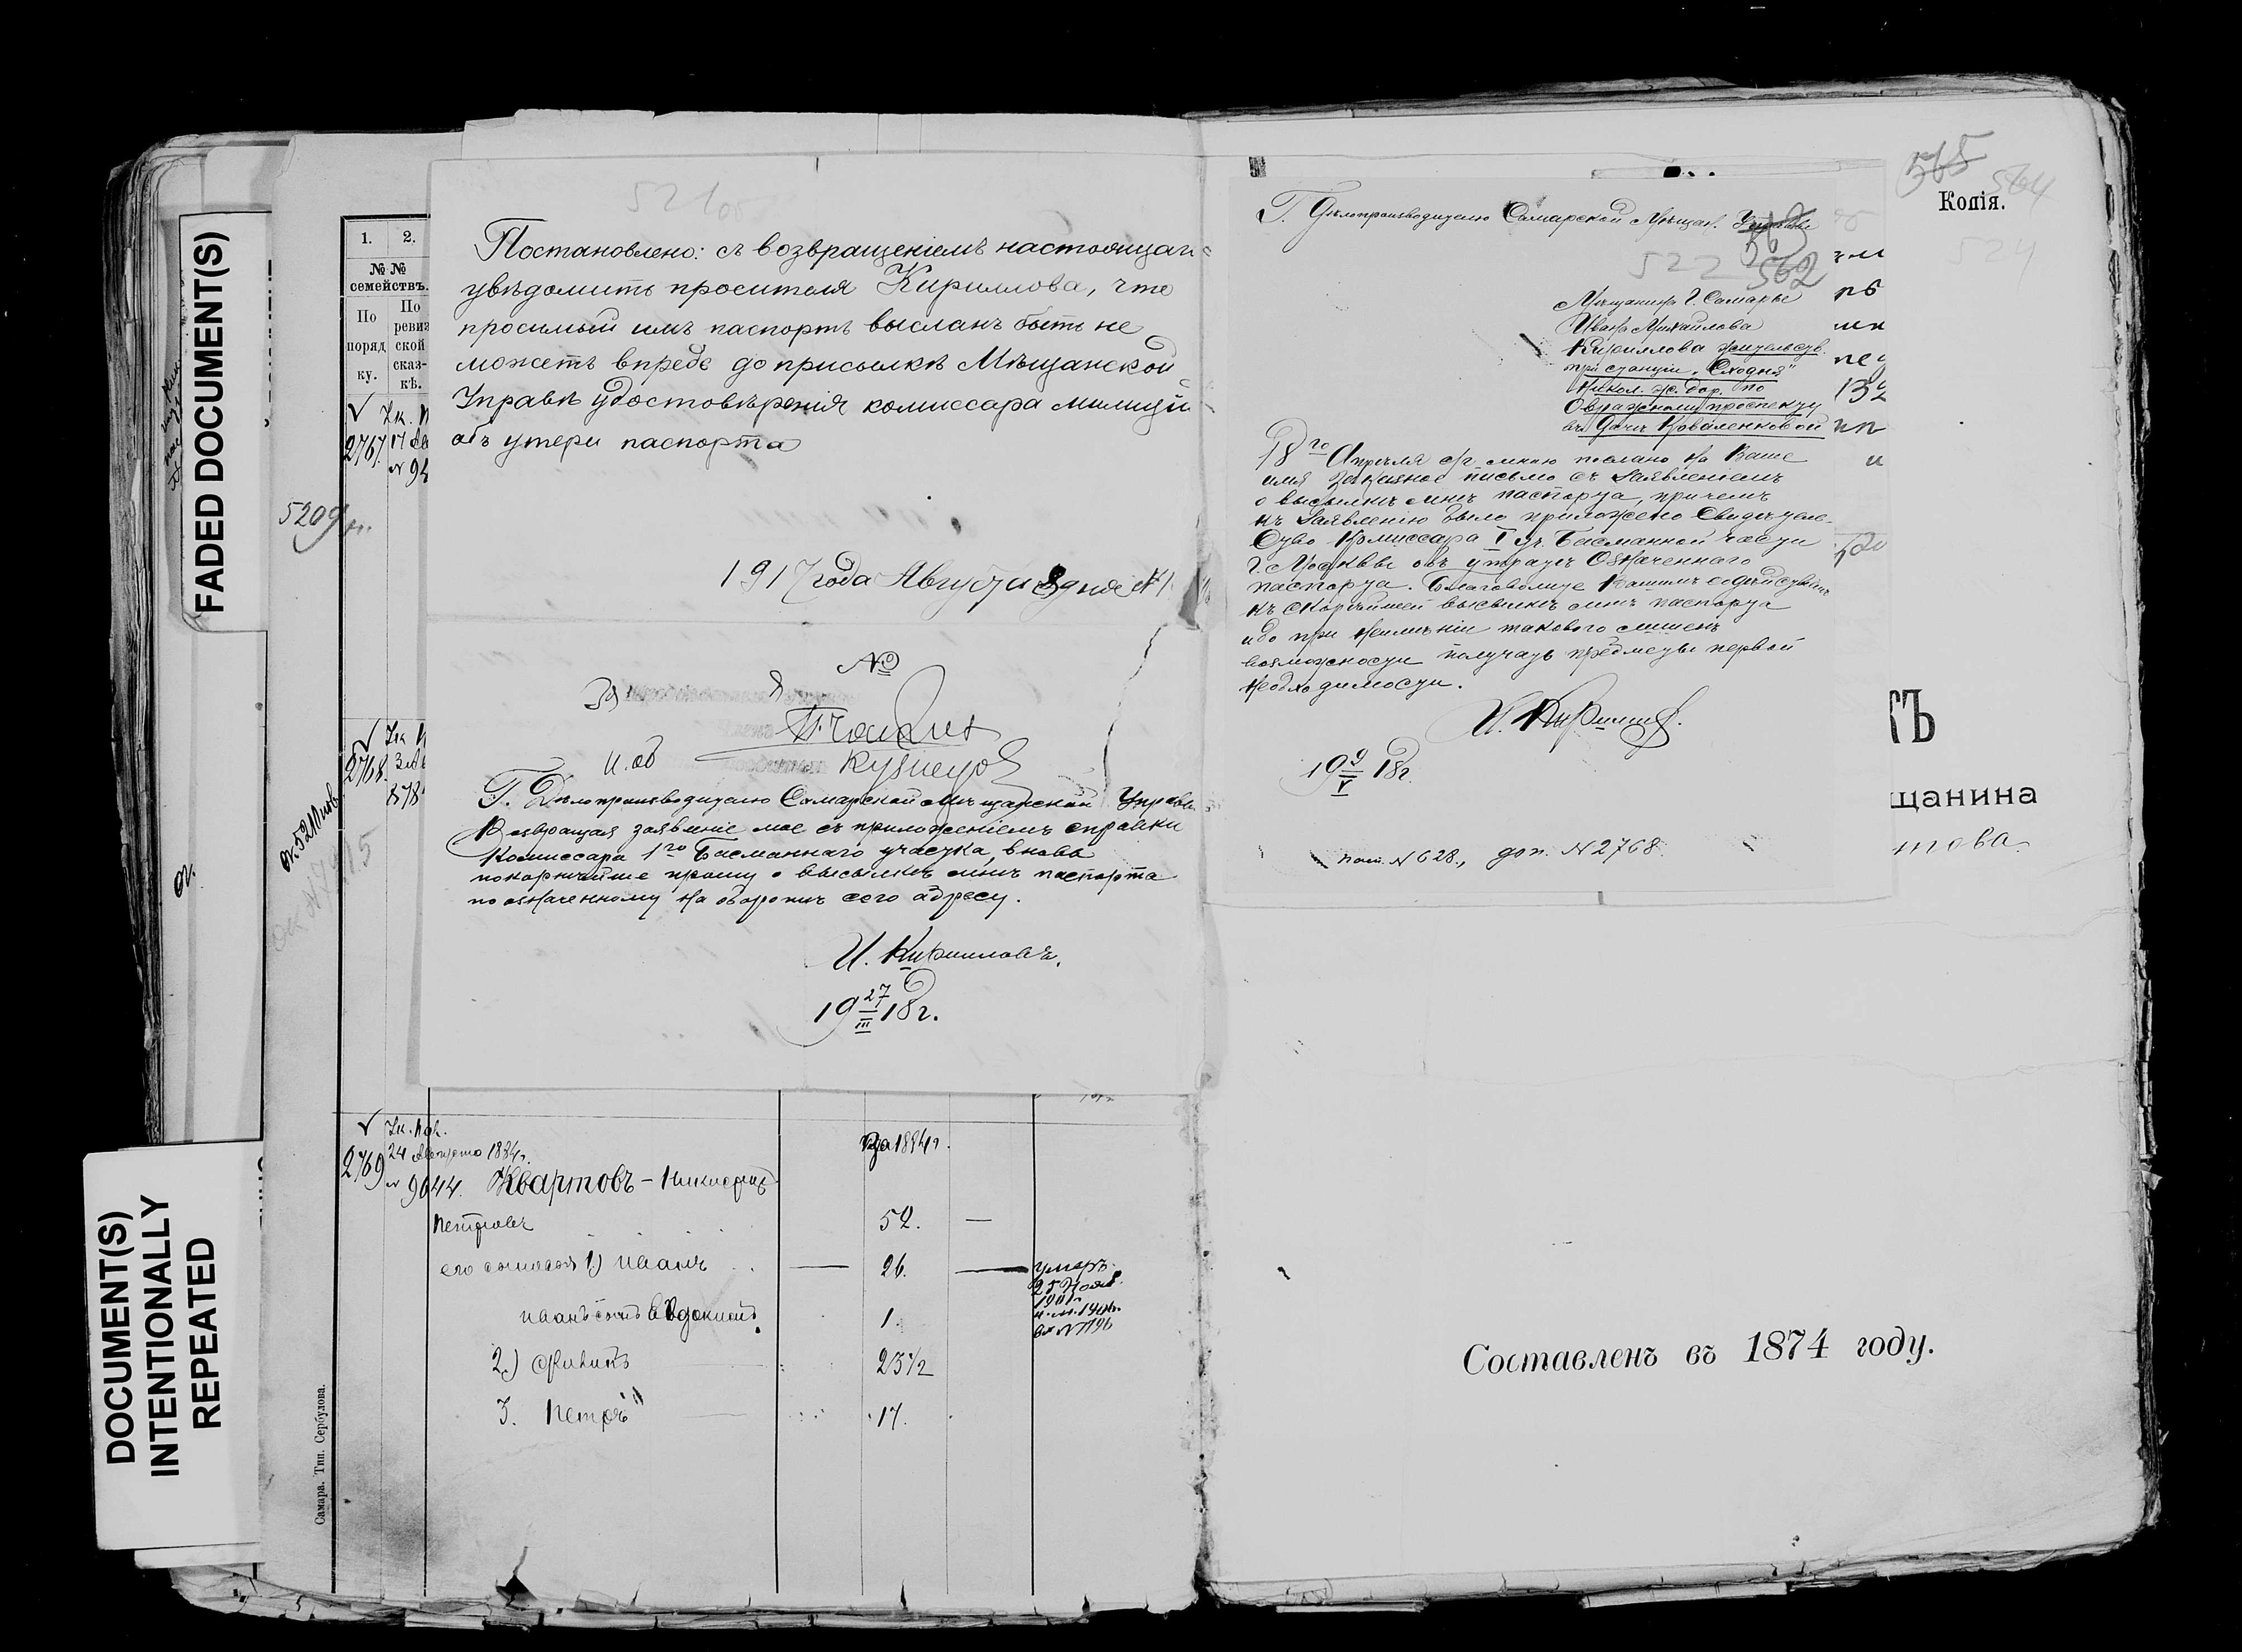 FADED DOCUMENT(S)
DOCUMENT(S)
INTENTIONALLY
REPEATED
1. 2.
№ №
семействъ.
По поряд ку.
По ревиз ской сказ- кѣ.
2767
5209
2768
Самара. Тип. Сербулова.
Постановлено: съ возвращеніемъ настоящаг
увѣдомить просителя Кириллова, что
просимый имъ паспортъ высланъ быть не
можетъ впредь до присылкѣ Мѣщанской
Управѣ удостовѣренія комиссара милиціи
объ утери паспорта
1917 года Августа 8 дня №
№
За
И. об Кузнецов
Г. Дѣлопроизводителю Самарской мѣщанской Управы
Возвращая заявленіе мое съ приложеніемъ справки
Комиссара 1го Басманнаго участка, вновь
покорнѣйше прошу о высылкѣ мнѣ паспорта
по означенному на оборотѣ сего адресу.
И. Кирилловъ.
19 27/III 18 г.
2769
24 Августа 1884 г.
№ 9044. Квартовъ-
Петровъ 52. —
его сыновья 1) Иванъ 26.
умеръ
1.
2.) Филипъ 23 1/2
3. Петръ 17.
Г. Дѣлопроизводителю Самарской Мѣщан. Управы
563
522 562
Мѣщанина г. Самары
Ивана Михайлова
Кириллова жительств.
при станціи „Сходня"
Никол. ж. дор. по
Овражному проспекту
въ дачѣ Коваленковой
18го Апрѣля с/г мною послано на Ваше
имя заказное письмо съ заявленіемъ
о высылкѣ мнѣ паспорта, причемъ
къ заявленію было приложено Свидѣтель-
ство Комиссара I уч. Басманной части
г. Москвы объ утратѣ означеннаго
паспорта. Благоволите Вашимъ содѣйствіемъ
къ скорѣйшей высылкѣ мнѣ паспорта
ибо при неимѣніи такового лишенъ
возможности получать предметы первой
необходимости.
И. Кирилловъ.
19 9/V 18 г.
пос. № 628., доп. № 2768.
565 564
Копія.
524
ТЪ
щанина
Составленъ въ 1874 году.